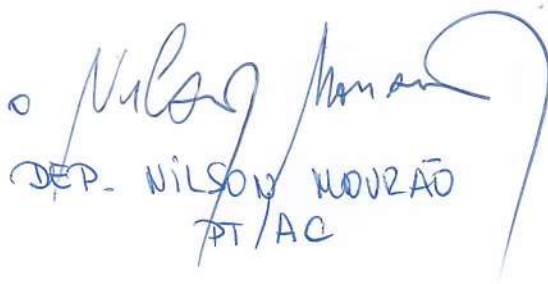 Nilson Mourão
DEP. NILSON MOURÃO
PT/AC